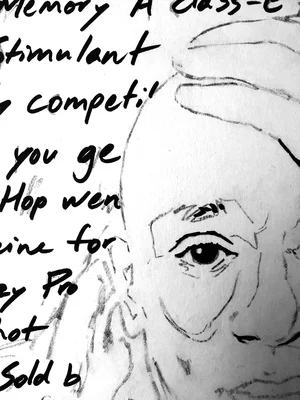 Memory A Class-E
Stimulant
competi
you ge
Hop wen
ine for
zy Pro
hot
Sold b